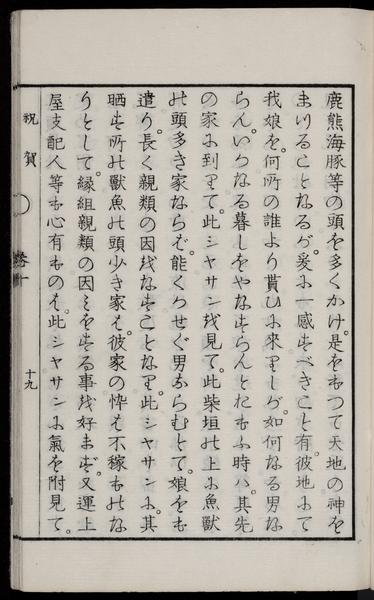 鹿熊海豚等の頭を多くかけ。是をもつて天地の神を
まつることなるが。爰に一感すべきこと有。彼地にて
我娘を。何所の誰より貰ひに來りしが。如何なる男な
らん。いかなる暮しをやなすらんとおもふ時ハ。其先
の家に到りて。此シヤサンを見て。此柴垣の上に魚獸
の頭多き家ならば。能くかせぐ男ならむとて。娘をも
遣り。長く親類の因をなすことなり。此シヤサンに。其
晒す所の獸魚の頭少き家は。彼家の悴は不稼ものな
りとして。縁組親類の因ミをする事を好まず。又運上
屋支配人等も心有ものは。此シヤサンに氣を附見て。
祝賀
卷一
十九